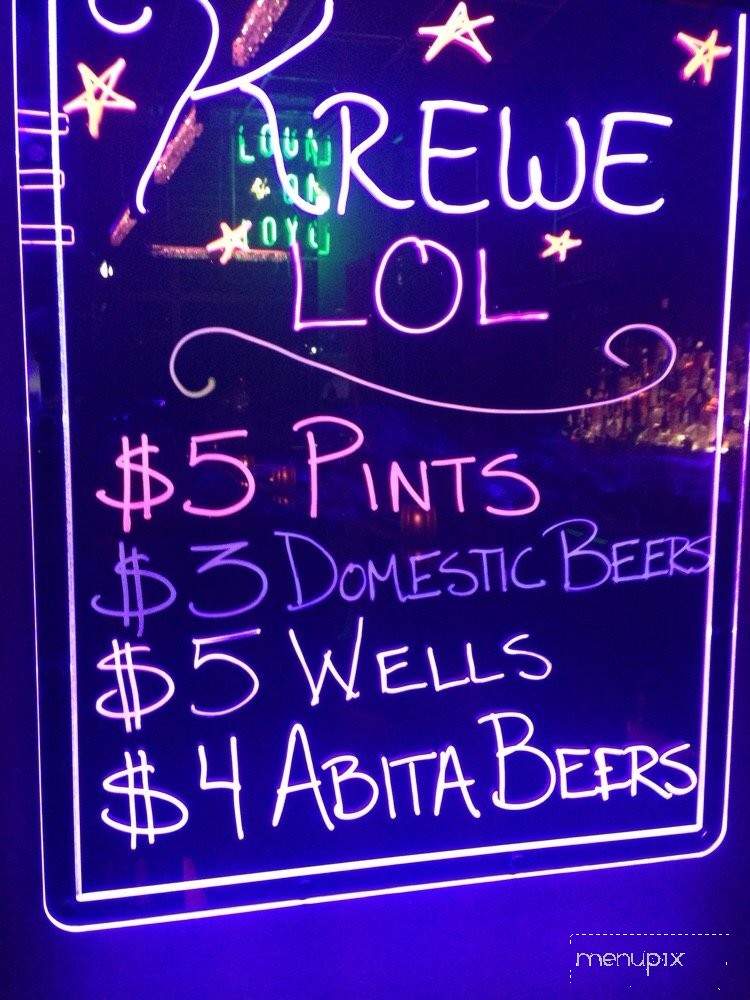 KREWE
LOL
$5 PINTS
$3 DOMESTIC BEERS
$5 WELLS
$4 ABITA BEERS
menupix